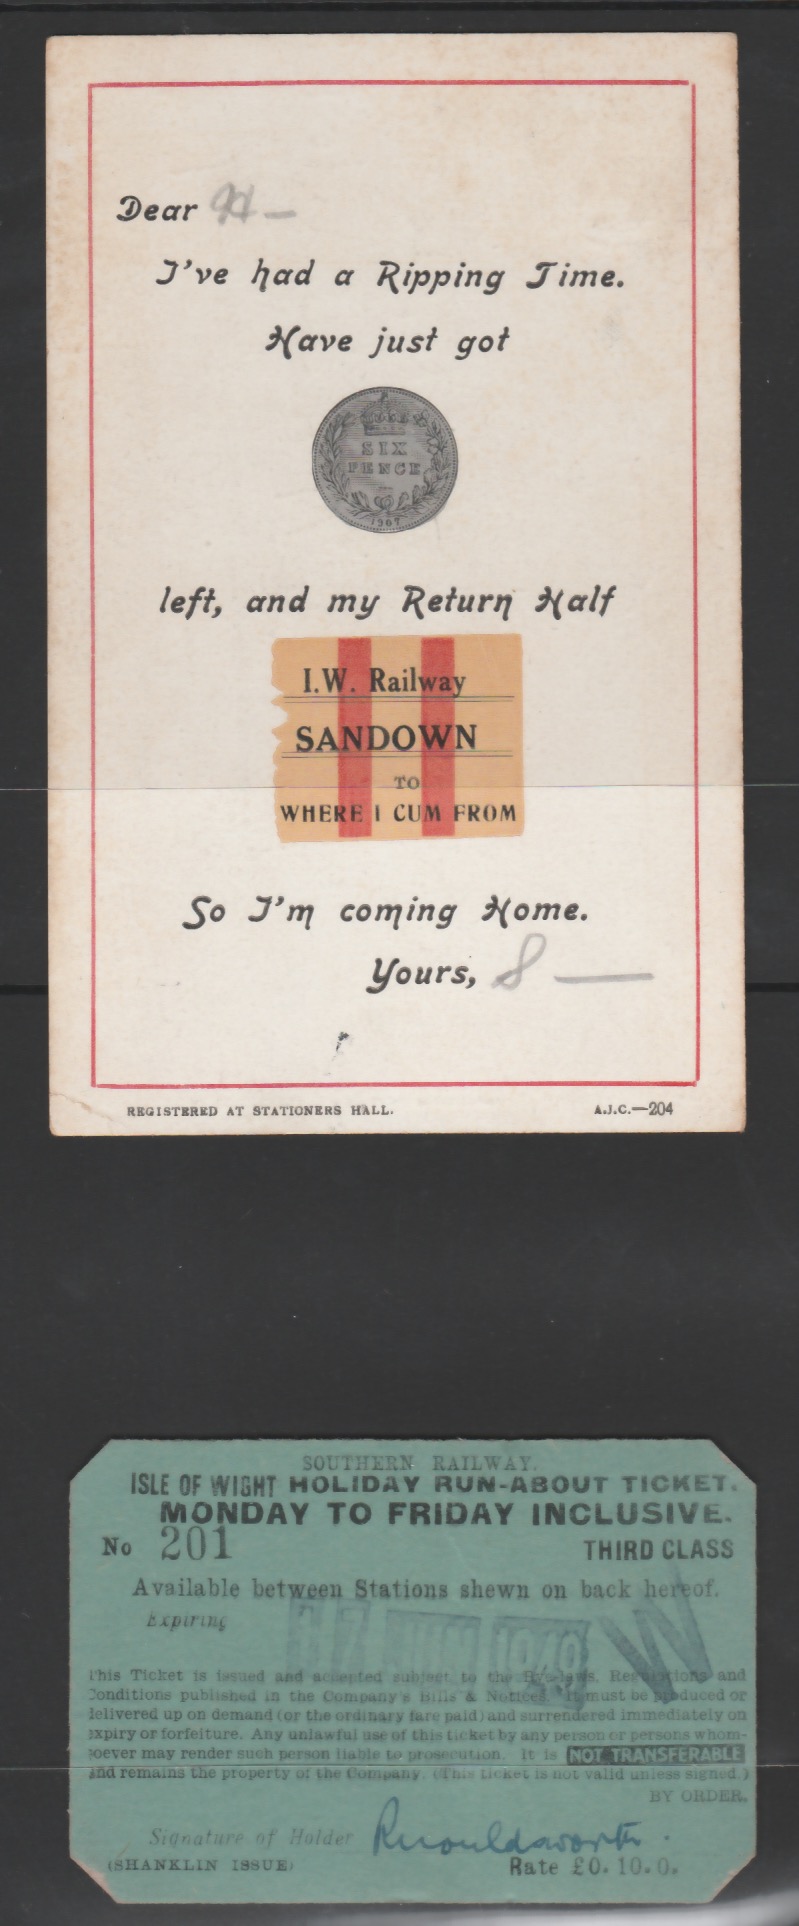 Dear H —
I've had a Ripping Time.
Have just got
SIX
PENCE
1907
left, and my Return Half
I.W. Railway
SANDOWN
TO
WHERE I CUM FROM
So I'm coming Home.
Yours, S —
REGISTERED AT STATIONERS HALL. A.J.C.—204
SOUTHERN RAILWAY.
ISLE OF WIGHT HOLIDAY RUN-ABOUT TICKET.
MONDAY TO FRIDAY INCLUSIVE.
No 201 THIRD CLASS
Available between Stations shewn on back hereof.
Expiring W
This Ticket is issued and accepted subject to the Bye-laws, Regulations and
Conditions published in the Company's Bills & Notices. It must be produced or
delivered up on demand (or the ordinary fare paid) and surrendered immediately on
expiry or forfeiture. Any unlawful use of this ticket by any person or persons whom-
soever may render such person liable to prosecution. It is NOT TRANSFERABLE
and remains the property of the Company. (This ticket is not valid unless signed.)
BY ORDER.
Signature of Holder
(SHANKLIN ISSUE) Rate £0.10.0.